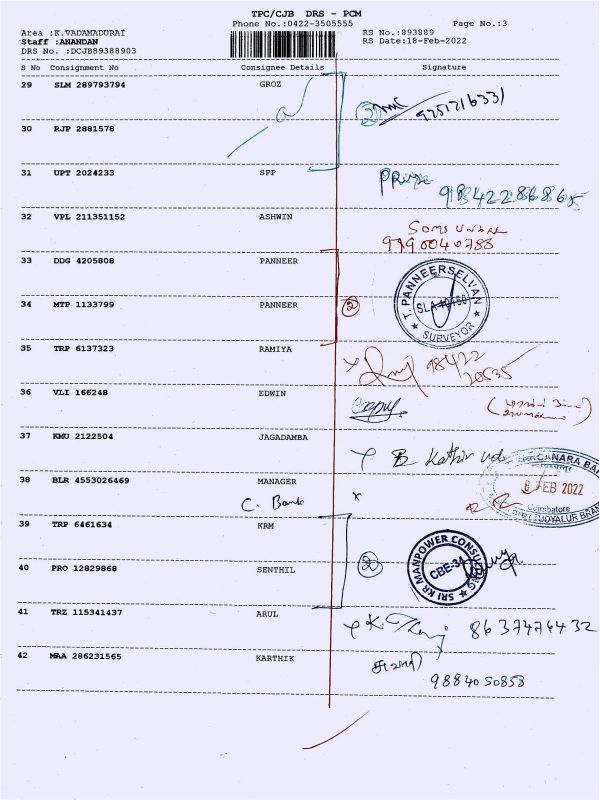 TPC/CJB DRS - PCM
Phone No.:0422-3505555
Page No.:3
Area :K.VADAMADURAI
Staff :ANANDAN
DRS No. :DCJB89388903
RS No.:893889
RS Date:18-Feb-2022
S No Consignment No Consignee Details Signature
29 SLM 289793794 GROZ
② 9751716331
30 RJP 2881578
31 UPT 2024233 SPP
Priya
32 VPL 211351152 ASHWIN
9190040788
33 DDG 4205808 PANNEER
34 MTP 1133799 PANNEER
②
T. PANNEERSELVAN
SURVEYOR
35 TRP 6137323 RAMIYA
98422
20535
36 VLI 166248 EDWIN
37 KMU 2122504 JAGADAMBA
B Kathir
38 BLR 4553026469 MANAGER
C. Bank x
CANARA BA
8 FEB 2022
Coimbatore
39 TRP 6461634 KRM
40 PRO 12829868 SENTHIL
②
SRI KR MANPOWER CONSULTING
CBE-34
41 TRZ 115341437 ARUL
8637474432
42 MAA 286231565 KARTHIK
9884050858